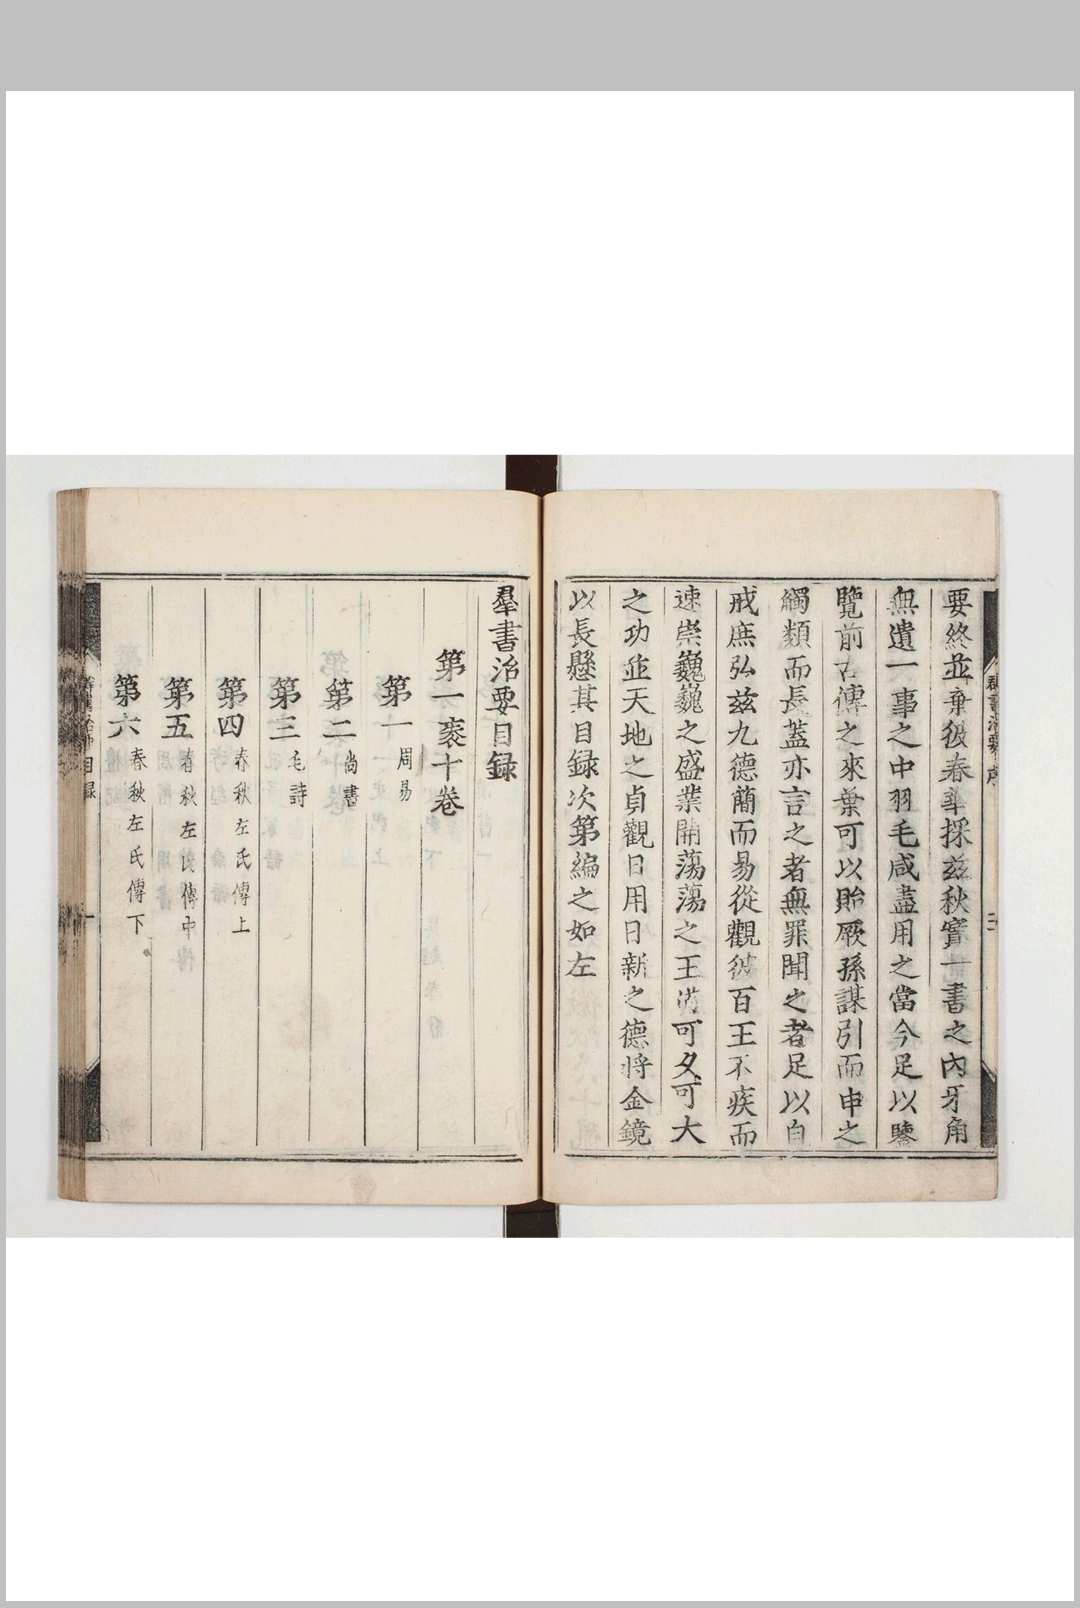 要終並棄彼春華採茲秋實一書之內牙角
無遺一事之中羽毛咸盡用之當今足以鑒
覽前古傳之來葉可以貽厥孫謀引而申之
觸類而長蓋亦言之者無罪聞之者足以自
戒庶弘茲九德簡而易從觀彼百王不疾而
速崇巍巍之盛業開蕩蕩之王道可久可大
之功並天地之貞觀日用日新之德將金鏡
以長懸其目録次第編之如左
羣書治要目録
第一袠十卷
第一 周易
第二 尚書
第三 毛詩
第四 春秋左氏傳上
第五 春秋左氏傳中
第六 春秋左氏傳下
目録
一